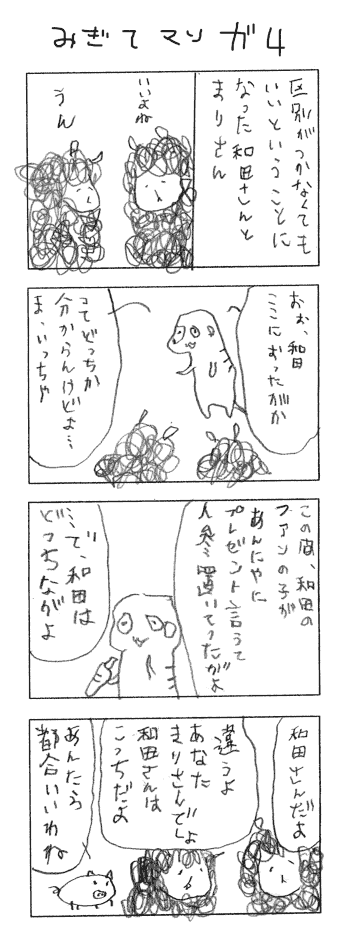 みぎてマンガ4
区別がつかなくても
いいということに
なった和田さんと
まりさん
いいよね
うん
おお、和田
ここにおったがか
ってどっちか
分からんけどよ…
ま、いっちゃ
この間、和田の
ファンの子が
あんにゃに
プレゼント言うて
人参置いてったがよ
…で、和田は
どっちながよ
和田さんだよ
違うよ
あなた
まりさんでしょ
和田さんは
こっちだよ
あんたら
都合いいわね